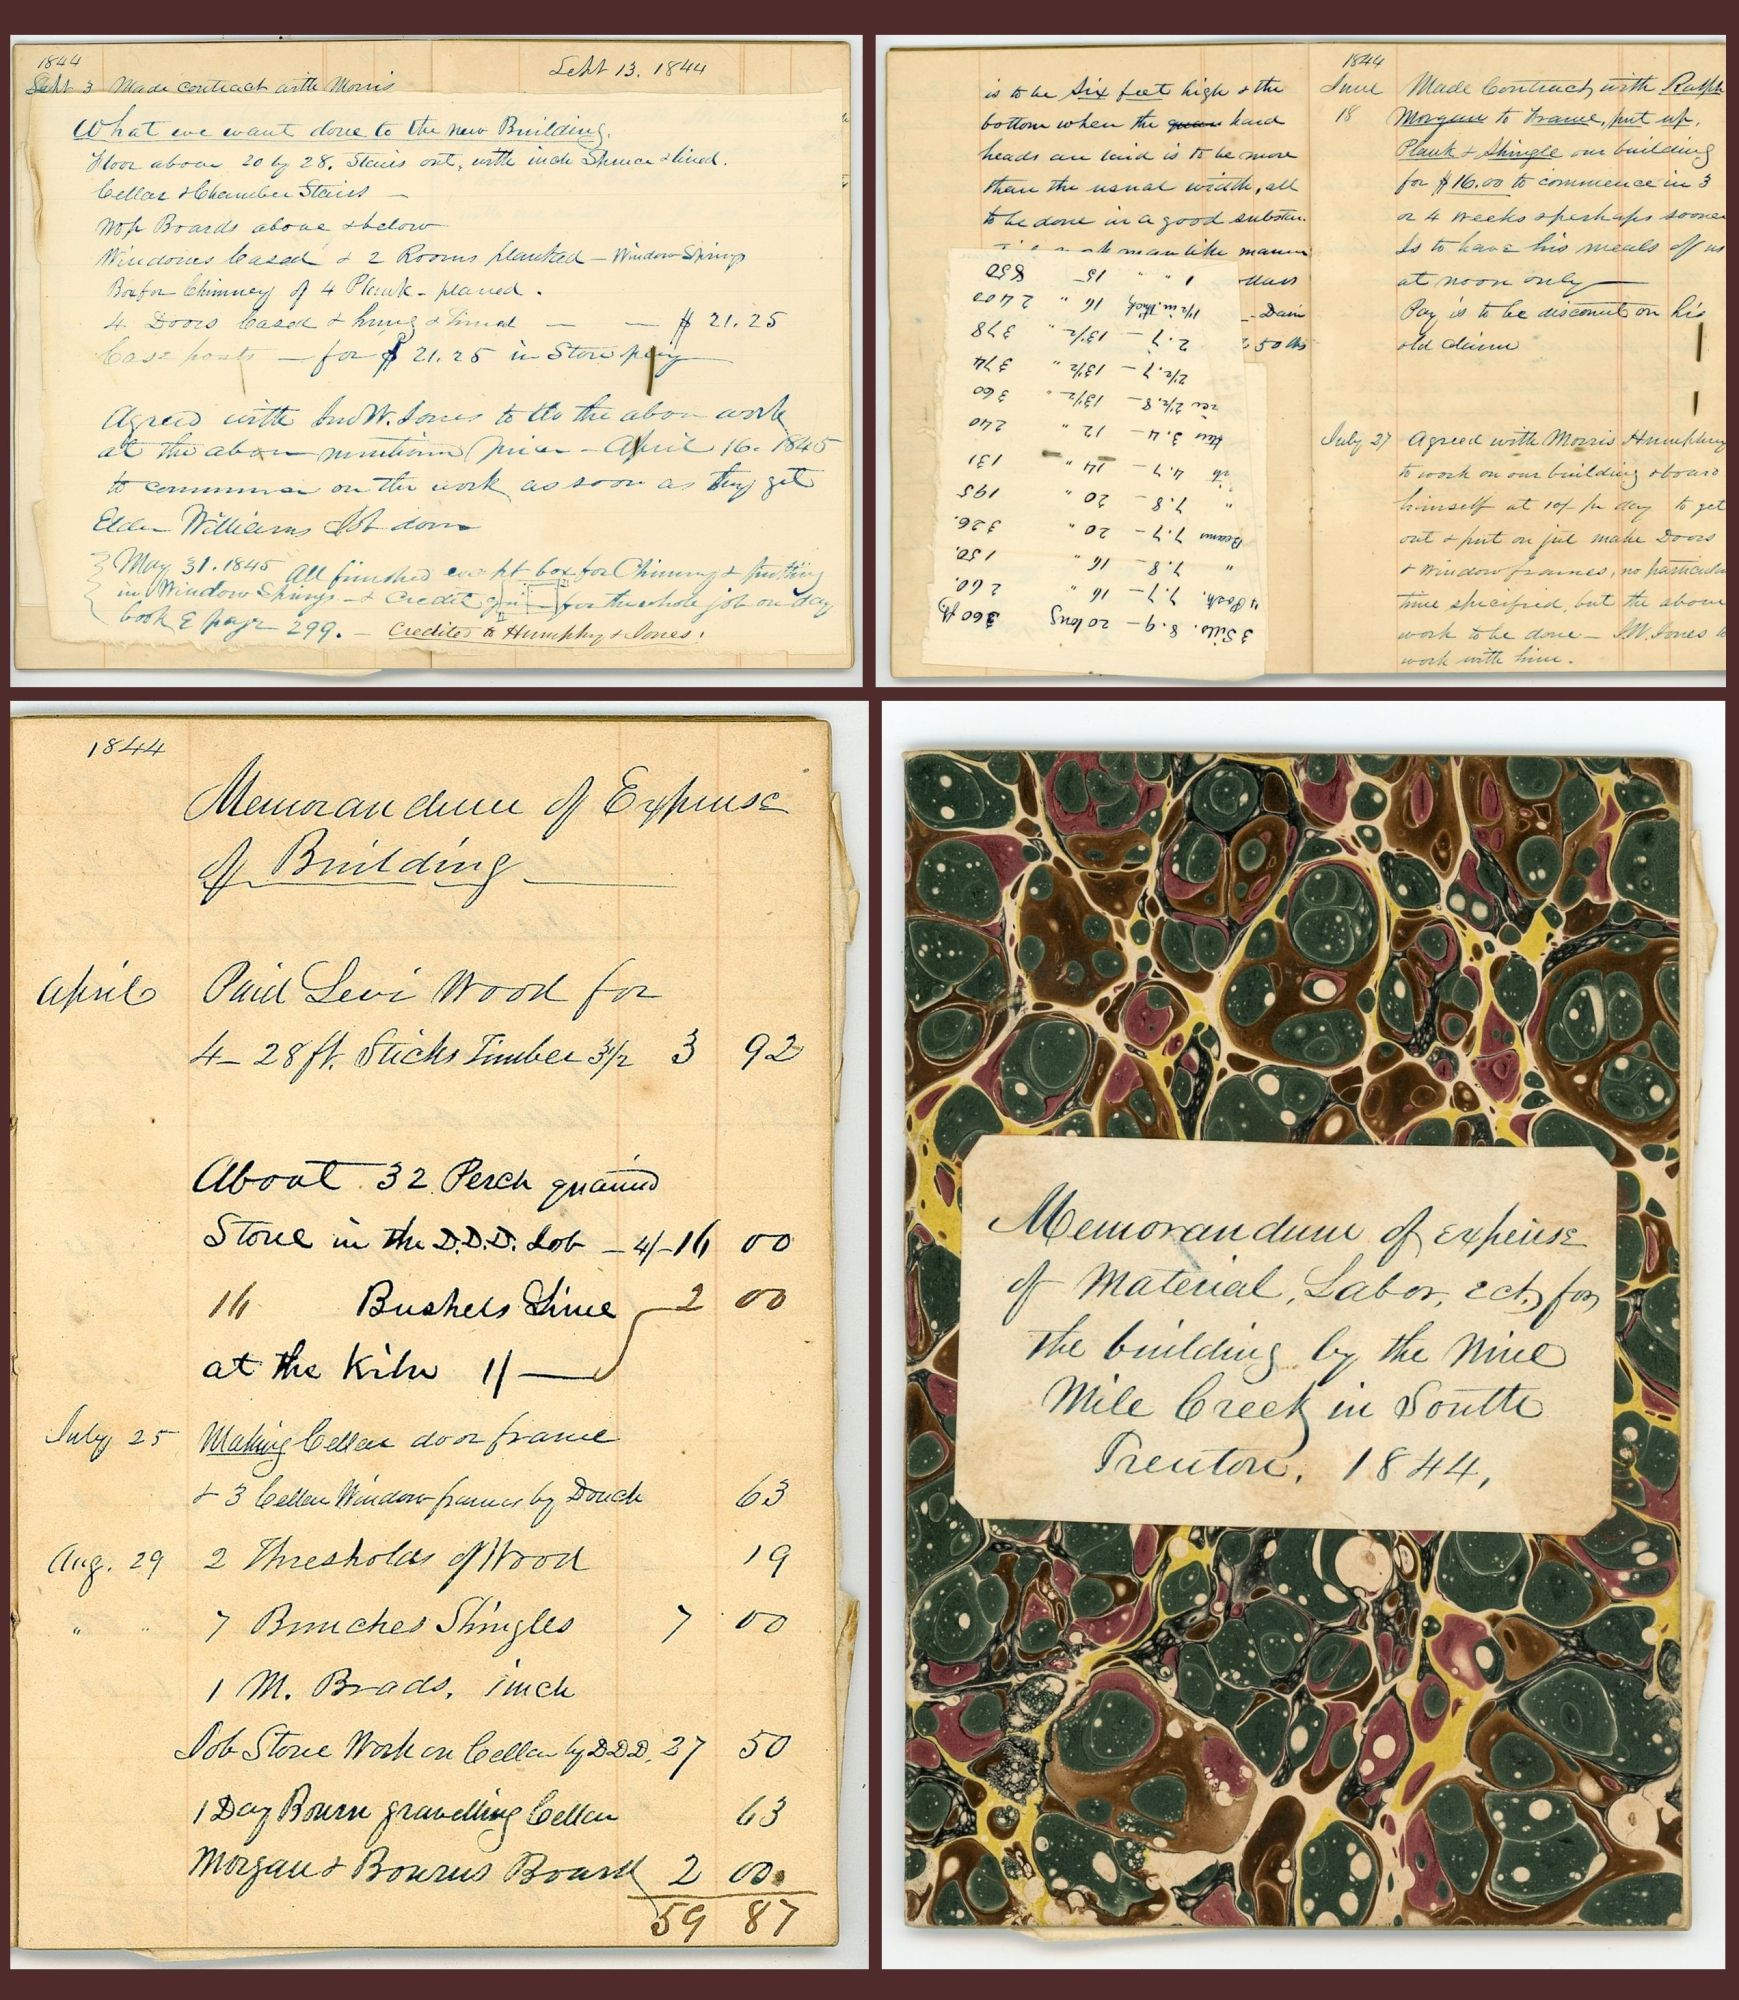 1844
Sept 13. 1844
Sept 3 Made contract with Morris
What we want done to the new Building.
Floor above 20 by 28. Stairs out, with inch Spruce & lined.
Cellar & Chamber Stairs —
Mop Boards above & below
Windows Cased & 2 Rooms planked — Window Springs
Box for Chimney of 4 Plank - planed.
4 Doors Cased & hung & Timed — — $ 21.25
Case posts — for $ 21.25 in Store pay
Agreed with Jno W. Jones to do the above work
at the above mentioned price - April 16. 1845
to commence on the work as soon as they get
Elder Williams Job done
May 31. 1845 All finished except box for Chimney & putting
in Window Springs — & Credit for the whole job on day
book E page 299. — Credited to Humphry & Jones.
is to be Six feet high & the
bottom when the hard
heads are laid is to be more
than the usual width, all
to be done in a good substan.
man like manner
Dain
50 lbs
3 Sills. 8.9 — 20 long 360 ft
4 Posts. 7.7 — 16 " 260.
" 7.8 — 16 " 150.
Beams 7.7 — 20 " 326.
" 7.8 — 20 " 195
4.7 — 14 " 131
3.4 — 12 " 240
2 1/2.8 — 13 1/2 " 360
2 1/2.7 — 13 1/2 " 374
2.7 — 13 1/2 " 378
1 1/2 in. thick 16 " 2400
1 " " 15 — 850
1844
June Made Contract with Ralph
18 Morgan to Frame, put up,
Plank & Shingle our building
for $16.00 to commence in 3
or 4 weeks & perhaps sooner
Is to have his meals of us
at noon only —
Pay is to be discount on his
old claim
July 27 Agreed with Morris Humphry
to work on our building & board
himself at 10/ per day to get
out & put on jet make Doors
& Window frames, no particular
time specified, but the above
work to be done — J.W. Jones to
work with him.
1844
Memorandum of Expense
of Building
April Paid Levi Wood for
4 - 28 ft. Sticks Timber 3 1/2 3 92
About 32 Perch quarried
Stone in the D.D.D. Job — 4/- 16 00
16 Bushels Lime 2 00
at the Kiln 1/ —
July 25 Making Cellar door frame
& 3 Cellar Window frames by Douch 63
Aug. 29 2 Thresholds of Wood 19
" " 7 Bunches Shingles 7 00
1 M. Brads, inch
Job Stone Work on Cellar by D.D.D. 27 50
1 Day Bourn gravelling Cellar 63
Morgan & Bourns Board 2 00
59 87
Memorandum of expense
of Material, Labor, ect, for
the building by the Nine
Mile Creek in South
Trenton, 1844,